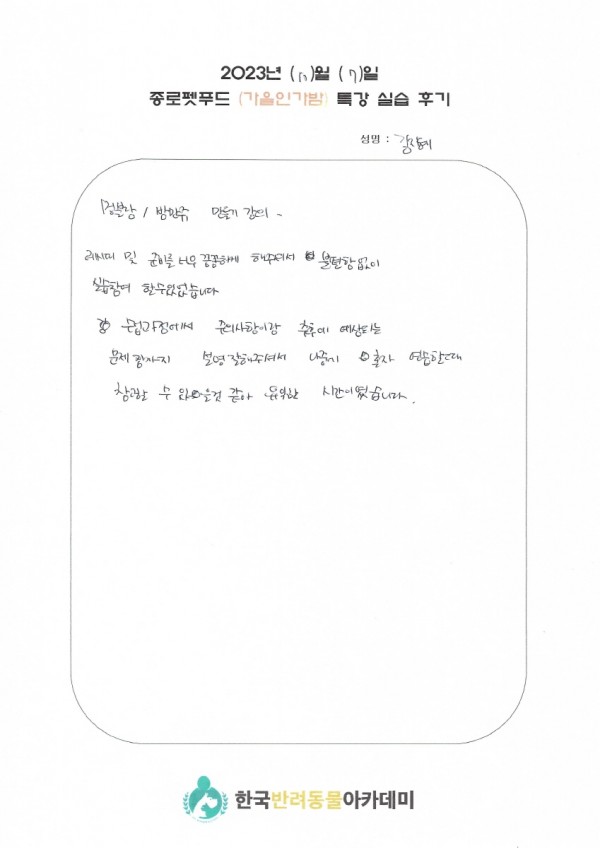 2023년 (10)월 (7)일
종로펫푸드 (가을인가밤) 특강 실습 후기
성명 :
/ 밤만쥬 만들기 강의 ~
레시피 및 준비를 너무 꼼꼼하게 해주셔서 불편함없이
실습참여 할수있었습니다
수업과정에서 주의사항이랑 추후에 예상되는
문제점까지 설명 잘해주셔서 나중에 혼자 연습할때
참고할 수 있을것 같아 유익한 시간이였습니다.
한국반려동물아카데미